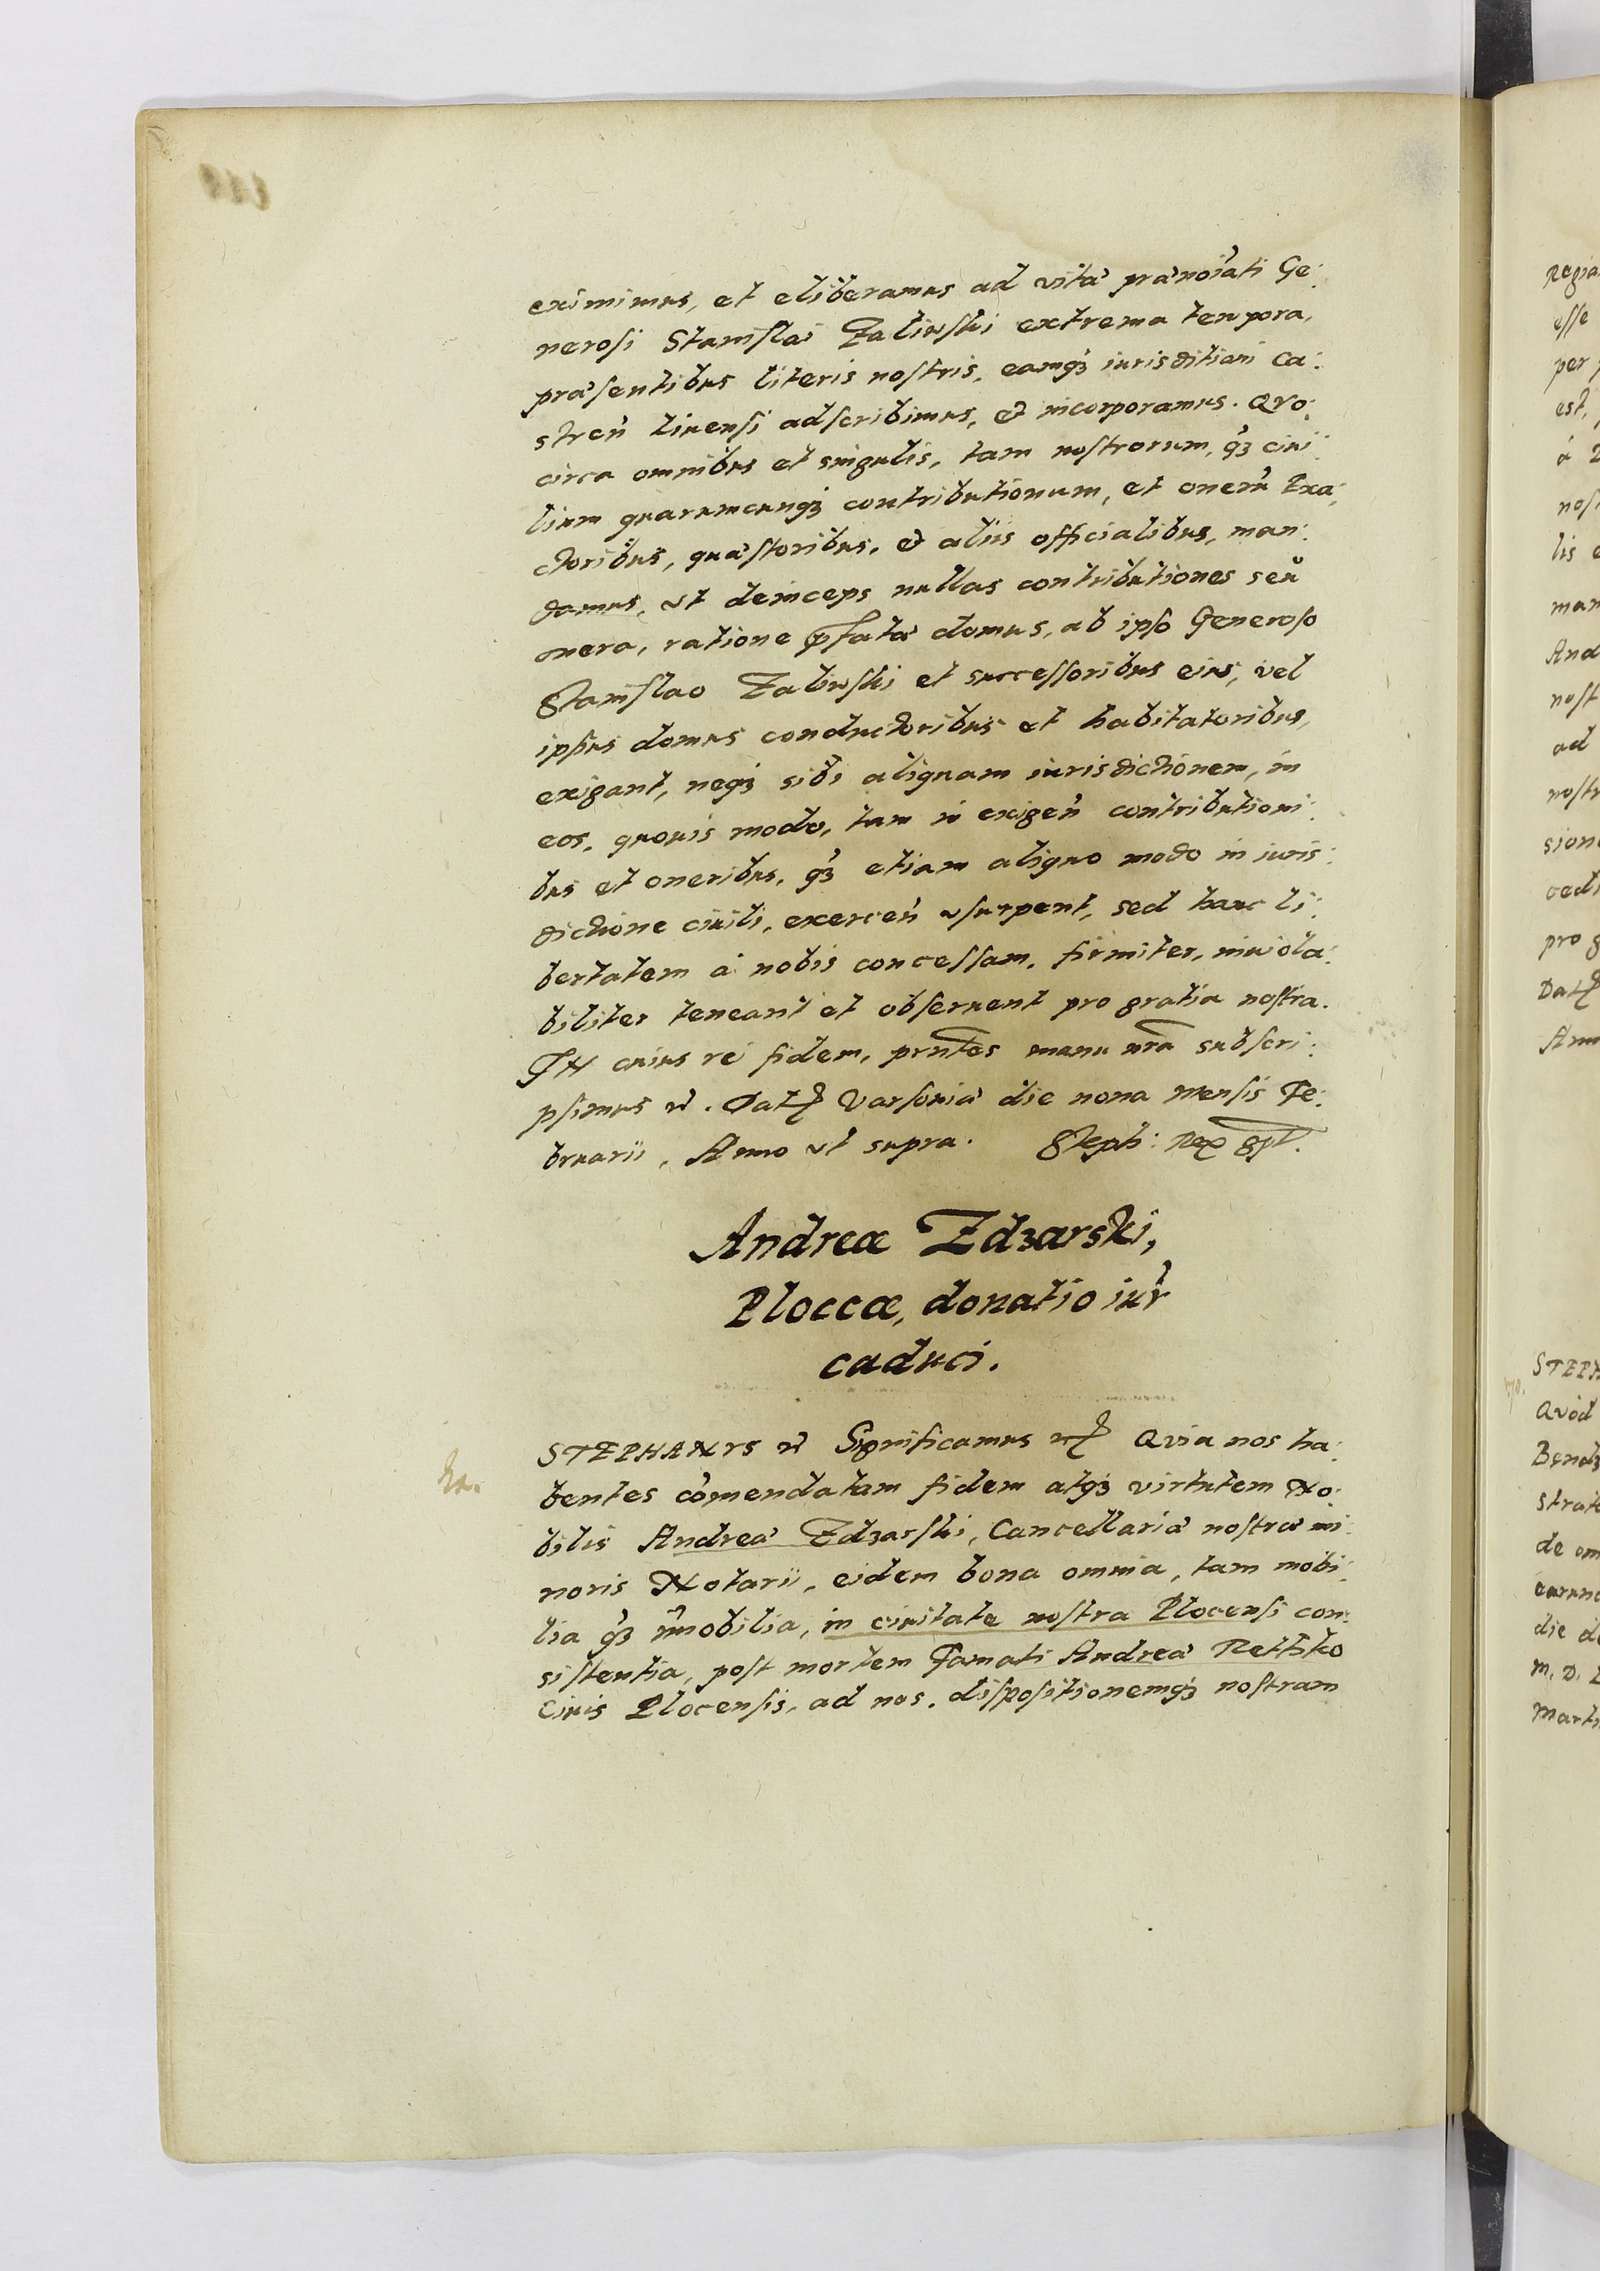 eximimus, et eliberamus ad vitæ prænoïati Ge:
nerosi Stanislai Zaliwski extrema tempora,
præsentibus literis nostris, eamq3 iurisditioni Ca:
streñ Liuensi adscribimus, et incorporamus. Quo:
circa omnibus et singulis, tam nostrorum, q̃3 ciui:
lium quarumcunq3 contributionum, et onerũ Exa:
ctoribus, quæstoribus, et aliis officialibus, man:
damus, ut deinceps nullas contributiones seũ
onera, ratione p̃fatæ domus, ab ipso Generoso
Stanislao Zaliwski et successoribus eius, vel
ipsius domus conductoribus et habitatoribus,
exigant, neq3 sibi aliquam iurisdictionem, in
eos, quouis modo, tam in exigeñ contributioni:
bus et oneribus, q̃3 etiam aliquo modo in iuris:
dictione ciuili, exerceñ usurpent, sed hanc li:
bertatem à nobis concessam, firmiter, inuiola:
biliter teneant et obseruent pro gratia nostra.
IN cuius rei fidem, prñtes manu nr̃a subscri:
psimus etc. Dat. Varsouiæ die nona mensis Fe:
bruarii, Anno ut supra. Steph: Rex spt.
Andreæ Zdzarski,
Ploccæ, donatio iur̃
caduci.
STEPHANUS etc. Significamus etc. Quia nos ha:
bentes com̃endatam fidem atq3 virtutem No:
bilis Andreæ Zdzarski, Cancellariæ nostræ mi:
noris Notarii, eidem bona omnia, tam mobi:
lia q̃3 im̃obilia, in ciuitate nostra Plocensi con:
sistentia, post mortem Famati Andreæ Rethko
Ciuis Plocensis, ad nos, dispositionemq3 nostram
Regia
esse
per
est,
nos
lis
man
And
nost
ad
nostr
sion
pro g
Dat
Ann
STEPH
Quod
Bendz
strat
de om
earun
die d
M. D. L
Marti